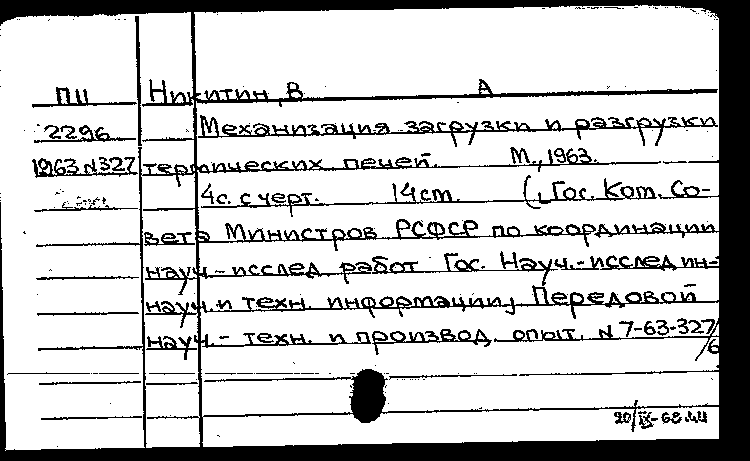 ПИ Никитин, В А
2296 Механизация загрузки и разгрузки
1963 N327 термических печей. М., 1963.
4с. с черт. 14 cm. (Гос. Ком. Со-
вета Министров РСФСР по координации
науч.-исслед работ Гос. Науч.-исслед ин-т
науч. и техн. информации, Передовой
науч.- техн. и производ. опыт. N 7-63-327/6
20/IX-68